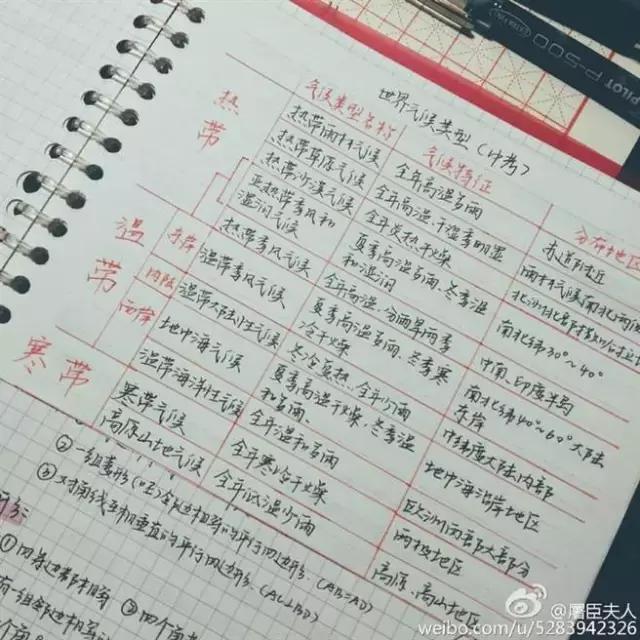 世界气候类型(中考)
气候类型名称 气候特征 分布地区
热带
热带雨林气候 全年高温多雨 赤道附近
热带草原气候 全年高温干湿季明显 雨林气候南北两侧
热带沙漠气候 全年炎热干燥
亚热带季风和湿润气候 夏季高温多雨、冬季温和湿润 南北纬30°~40°
热带季风气候 全年高温,分雨旱两季 中南、印度半岛
温带
东岸
温带季风气候 夏季高温多雨、冬季寒冷干燥 南北纬40°~60°大陆东岸
内陆
温带大陆性气候 冬冷夏热、全年少雨 中纬度大陆内部
西岸
地中海气候 夏季高温干燥、冬季温和多雨 地中海沿岸地区
温带海洋性气候 全年温和多雨 欧洲西部大部分
寒带
寒带气候 全年寒冷干燥 两极地区
高原山地气候 全年低温少雨 高原、高山地区
PILOT P-500
@屠臣夫人
weibo.com/u/5283942326